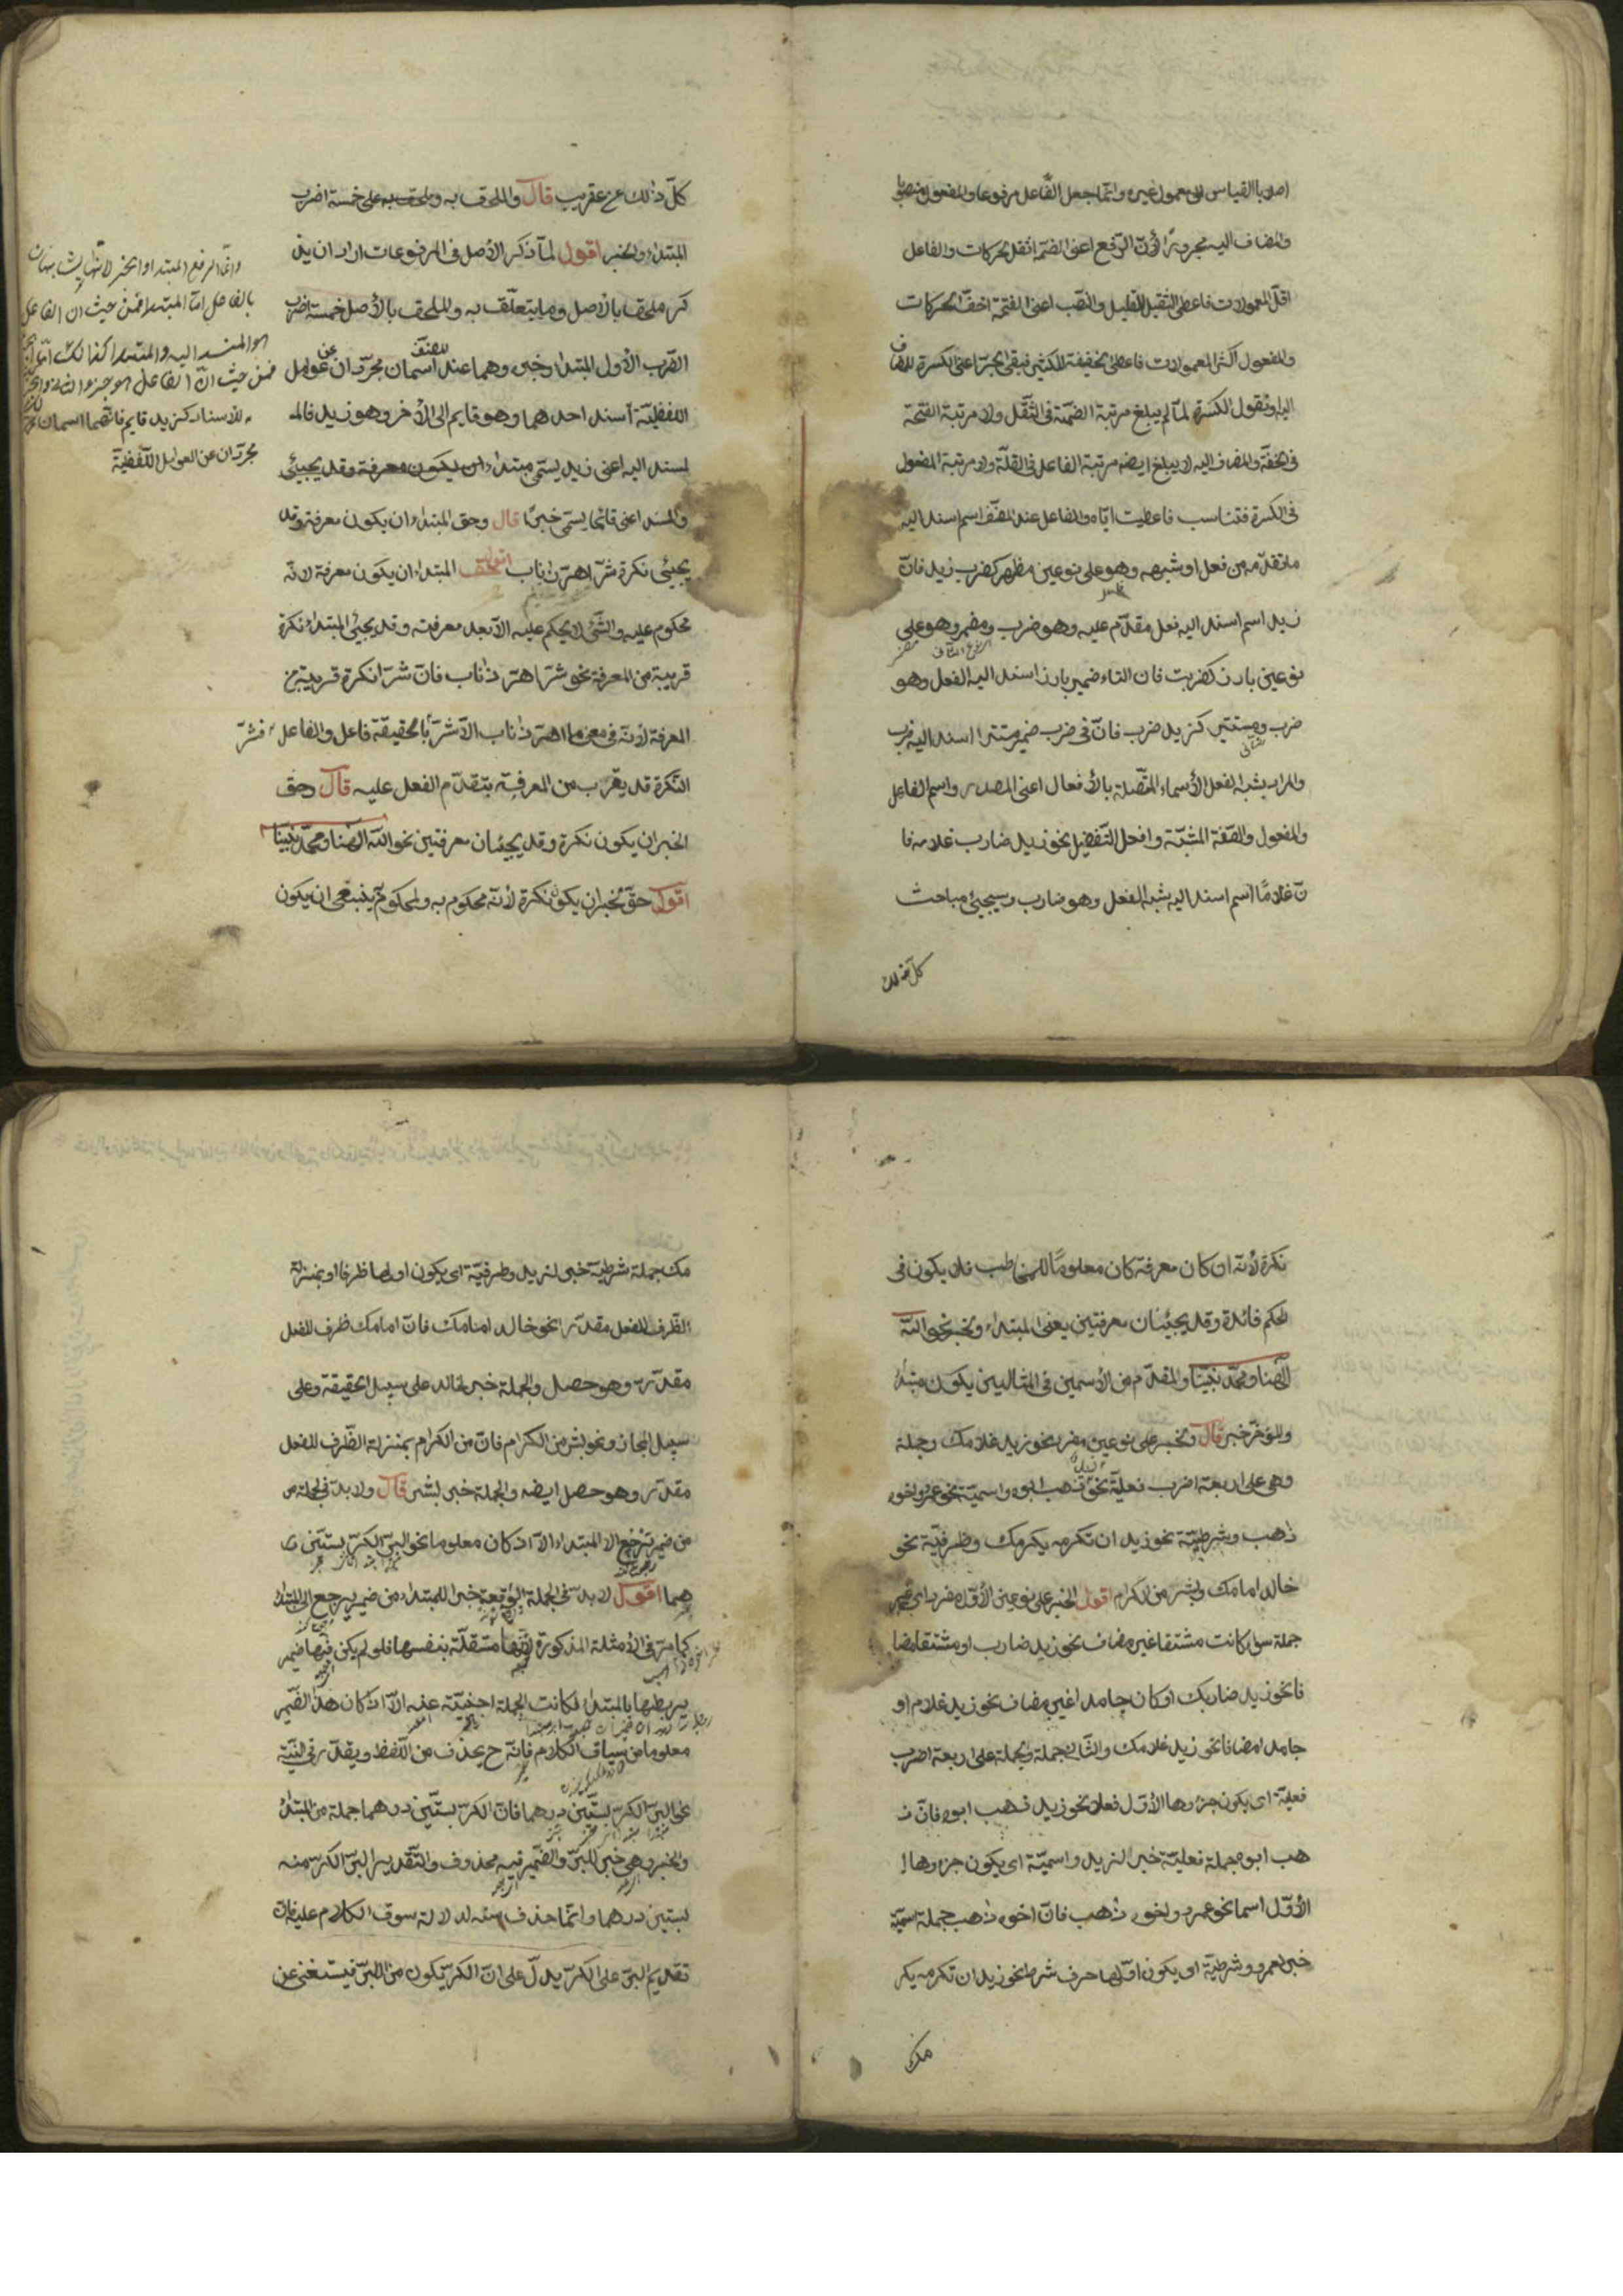 اصلا بالقياس الى معمول غيره وانّما جعل الفّاعل مرفوعا والمفعول منصوبا
والمضاف اليه مجرورًا لأنّ الرّفع اعنى الضمّ اثقل الحركات والفاعل
اقلّ المعمولات فاعطى الثقيل القليل والنّصب اعنى الفتحة اخفّ الحركات
والمفعول اكثر المعمولات فاعطى الخفيفة الكثير فبقى الجرّ اعنى الكسرة للمضاف
اليه او نقول الكسرة لمّا لم يبلغ مرتبة الضمّة فى الثّقل ولا مرتبة الفتحة
فى الخفّة والمضاف اليه لا يبلغ ايضه مرتبة الفاعل فى القلّة ولا مرتبة المفعول
فى الكثرة فتناسب فاعطيت ايّاه والفاعل عند المصّنف اسم اسند اليه
ما تقدّمه من فعل او شبهه وهو على نوعين مظهر كضرب زيد فانّ
زيد اسم اسند اليه فعل مقدّم عليه وهو ضرب ومضمر وهو على
نوعين بارز كضربت فان التاء ضمير بارز اسند اليه الفعل وهو
ضرب ومستتر كزيد ضرب فانّ فى ضرب ضمير مستترا اسند اليه ضرب
والمراد بشبه الفعل الأسماء المتّصلة بالأفعال اعنى المصدر واسم الفاعل
والمفعول والصّفة المشبّهة وافعل التّفضيل نحو زيد ضارب غلامه فا
نّ غلامًا اسم اسند اليه شبه الفعل وهو ضارب وسيجيئ مباحث
كلّ ذلك
كلّ ذلك عن عقريب قال والملحق به وملحق به على خمسة اضرب
المبتداء والخبر اقول لمّا ذكر الأصل فى المرفوعات اراد ان يذ
كر ملحق بالأصل وما يتعلّق به والملحق بالأصل خمسة اضرب
الضّرب الأول المبتداء وخبره وهما عند المصنّف اسمان مجرّدان عن عوامل
اللفظيّة اسند احدهما وهو قايم الى الأخر وهو زيد فالم
لمسند اليه اعنى زيد يسمّى مبتداء لان يكون معرفة وقد يجيئى
والمسند اعنى قائما يسمّى خبرًا قال وحق المبتداء ان يكون معرفة وقد
يجيئى نكرة شرّ اهرّ ذا ناب اقول حق المبتداء ان يكون معرفة لانّه
محكوم عليه والشّئ لا يحكم عليه الّا بعد معرفته وقد يجيئ المبتداء نكرة
قريبة من المعرفة نحو شرّ اهرّ ذا ناب فانّ شرّا نكرة قريبة من
المعرفة لأنّه فى معنى ما اهرّ ذا ناب الّا شرّ بالحقيقة فاعل والفاعل فشرّ
النّكرة قد يقرب من المعرفة بتقدّم الفعل عليه قال وحق
الخبر ان يكون نكرة وقد يجيئان معرفتين نحو اللّه الٰهنا ومحمّد نبيّنا
اقول حقّ الخبر ان يكون نكرة لأنّه محكوم به والمحكوم به ينبغى ان يكون
وانّما رفع المبتدا والخبر لانّهما يشابهان
بالفاعل امّا المبتدا فمن حيث ان الفاعل
هو المسند اليه والمبتدا كذالك
فمن حيث انّ الفاعل هو جزء
للاسناد كزيد قايم فانّهما اسمان
مجرّدان عن العوامل اللّفظيّة
نكرة لأنّه ان كان معرفة كان معلومًا للمخاطب فلا يكون فى
الحكم فائدة وقد يجيئان معرفتين يعنى المبتداء والخبر نحو اللّه
الٰهنا ومحمّد نبيّنا والمقدّم من الأسمين فى المثالين يكون مبتداء
والمؤخّر خبر قال والخبر على نوعين مفرد نحو زيد غلامك وجملة
وهى على اربعة اضرب فعليّة نحو زيد ذهب ابوه واسميّة نحو عمرو اخوه
ذهب وشرطيّة نحو زيد ان تكرمه يكرمك وظرفيّة نحو
خالد امامك وبشر من الكرام اقول الخبر على نوعين الأوّل مفرد اى غير
جملة سواء كانت مشتقا غير مضاف نحو زيد ضارب او مشتقا مضا
فا نحو زيد ضاربك او كان جامدا غير مضاف نحو زيد غلام او
جامدا مضافا نحو زيد غلامك والثّانى جملة والجملة على اربعة اضرب
فعليّة اى يكون جزوها الأوّل فعلا نحو زيد ذهب ابوه فانّ ذ
هب ابوه جملة فعليّة خبر الزيد واسميّة اى يكون جزوها ا
الأوّل اسما نحو عمرو اخوه ذهب فانّ اخوه ذهب جملة اسميّة
خبر لعمرو وشرطيّة اى يكون اوّلها حرف شرط نحو زيد ان تكرمه يكر
مك
مك جملة شرطيّة خبر لزيد وظرفيّة اى يكون اولها ظرفا او بمنزلة
الظّرف للفعل مقدّر نحو خالد امامك فانّ امامك ظرف للفعل
مقدّر وهو حصل والجملة خبر لخالد على سبيل الحقيقة وعلى
سبيل المجاز نحو بشر من الكرام فانّ من الكرام بمنزلة الظّرف للفعل
مقدّر وهو حصل ايضه والجملة خبر لبشر قال ولا بدّ فى الجملة من
من ضمير ترجع الى المبتداء الّا اذا كان معلوما نحو البرّ الكرّ بستّين در
هما اقول لا بدّ فى الجملة الواقعة خبر المبتداء من ضمير يرجع الى المبتداء
كما مرّ فى الأمثلة المذكورة لانّها مستقلّة بنفسها فلو لم يكن فيها ضمير
يربطها بالمبتداء لكانت الجملة اجنبيّة عنه الّا اذا كان هذا الضّمير
معلوما من سياق الكلام فانّه ح يحذف من اللّفظ ويقدّر فى النّيّة
نحو البرّ الكرّ بستّين درهما فانّ الكرّ بستّين درهما جملة من المبتداء
والخبر وهى خبر للبرّ والضّمير فيه محذوف والتّقدير البرّ الكرّ منه
بستين درهما وانّما حذف منه لدلالة سوق الكلام عليه فانّ
تقديم البرّ على الكرّ يدلّ على انّ الكرّ يكون من البرّ فيستغنى عن